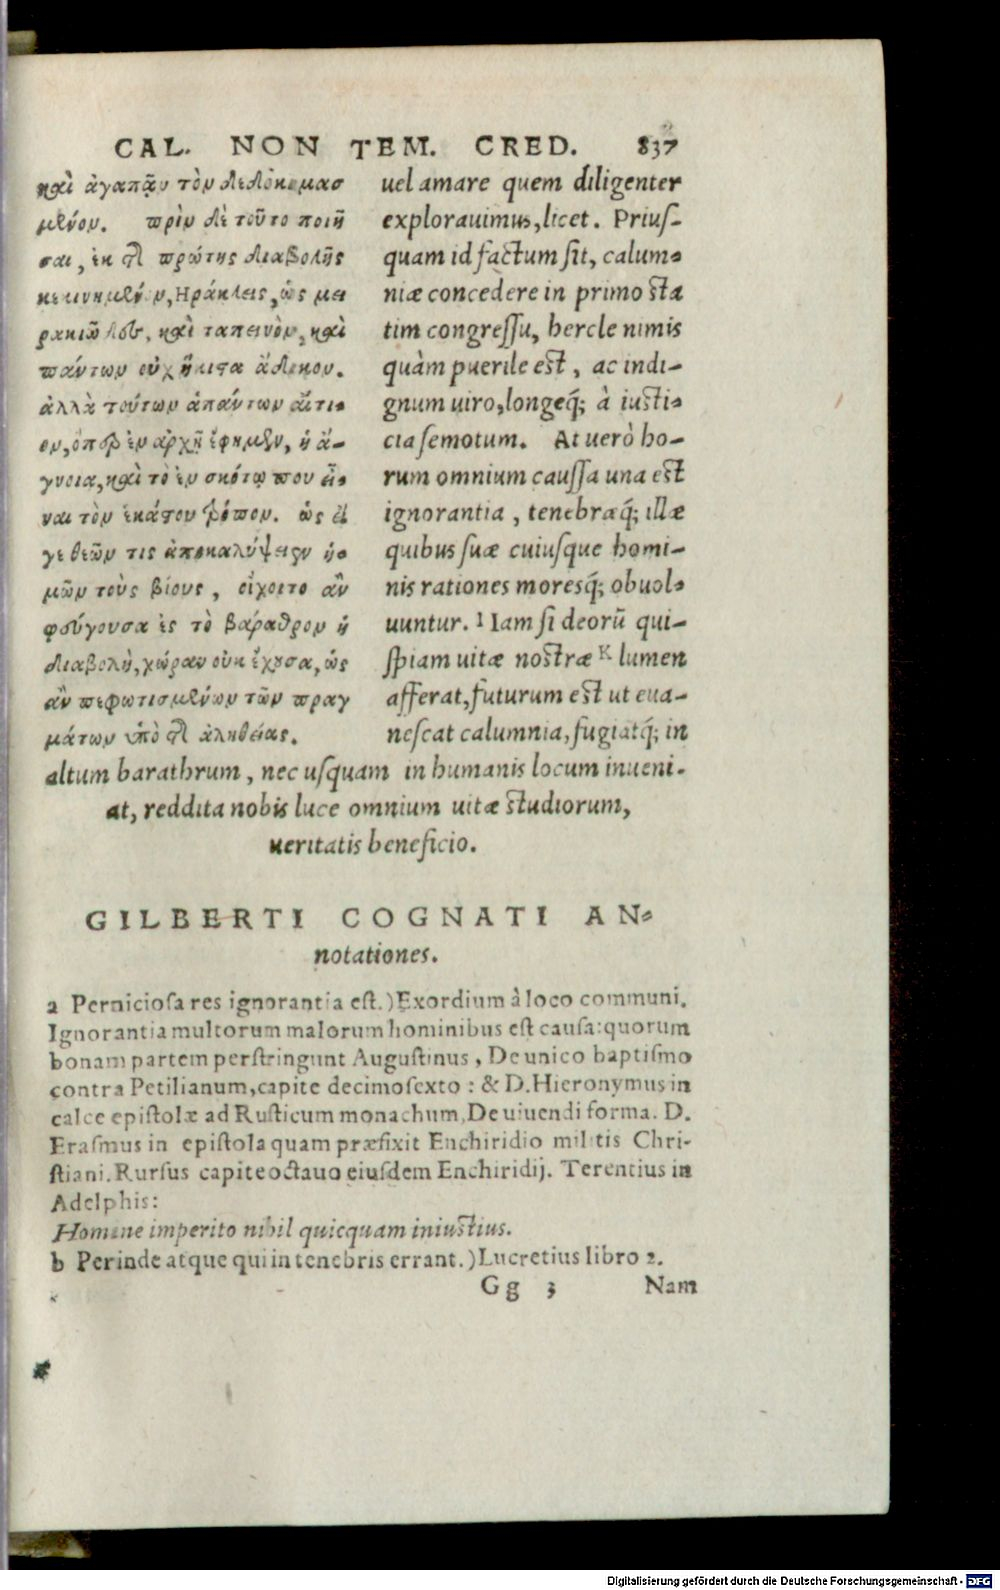 CAL. NON TEM. CRED. 837
καὶ ἀγαπᾷν τὸν δεδοκιμασ
μένον. πρὶν δὲ τοῦτο ποιῆ
σαι, ἐκ τῆς πρώτης διαβολῆς
κεκινημένον, Ηράκλεις, ὡς μει
ρακιῶδες, καὶ ταπεινὸν, καὶ
πάντων οὐχ ἥκιστα ἄδικον.
ἀλλὰ τούτων ἁπάντων αἴτι-
ον, ὅπερ ἐν ἀρχῇ ἔφημεν, ἡ ἄ-
γνοια, καὶ τὸ ἐν σκότῳ που εἶ-
ναι τὸν ἑκάστου τρόπον. ὡς εἴ
γε θεῶν τις ἀποκαλύψειεν ἡ-
μῶν τοὺς βίους, οἴχοιτο ἂν
φεύγουσα ἐς τὸ βάραθρον ἡ
διαβολὴ, χώραν οὐκ ἔχουσα, ὡς
ἂν πεφωτισμένων τῶν πραγ
μάτων ὑπὸ τῆς ἀληθείας.
uel amare quem diligenter
explorauimus, licet. Priuſ-
quam id factum ſit, calum-
niæ concedere in primo ſta
tim congreſſu, hercle nimis
quàm puerile eſt, ac indi-
gnum uiro, longeq́; à iuſti-
cia ſemotum. At uerò ho-
rum omnium cauſſa una eſt
ignorantia, tenebræq́; illæ
quibus ſuæ cuiuſque homi-
nis rationes moresq́; obuol-
uuntur. I Iam ſi deorũ qui-
ſpiam uitæ noſtræ K lumen
afferat, futurum eſt ut eua-
neſcat calumnia, fugiatq́; in
altum barathrum, nec uſquam in humanis locum inueni-
at, reddita nobis luce omnium uitæ ſtudiorum,
ueritatis beneficio.
GILBERTI COGNATI AN-
notationes.
a Pernicioſa res ignorantia eſt.) Exordium à loco communi.
Ignorantia multorum malorum hominibus eſt cauſa: quorum
bonam partem perſtringunt Auguſtinus, De unico baptiſmo
contra Petilianum, capite decimoſexto: & D. Hieronymus in
calce epiſtolæ ad Ruſticum monachum, De uiuendi forma. D.
Eraſmus in epiſtola quam præfixit Enchiridio militis Chri-
ſtiani. Rurſus capite octauo eiuſdem Enchiridij. Terentius in
Adelphis:
Homine imperito nihil quicquam iniuſtius.
b Perinde atque qui in tenebris errant.) Lucretius libro 2.
Gg 3 Nam
Digitalisierung gefördert durch die Deutsche Forschungsgemeinschaft - DFG